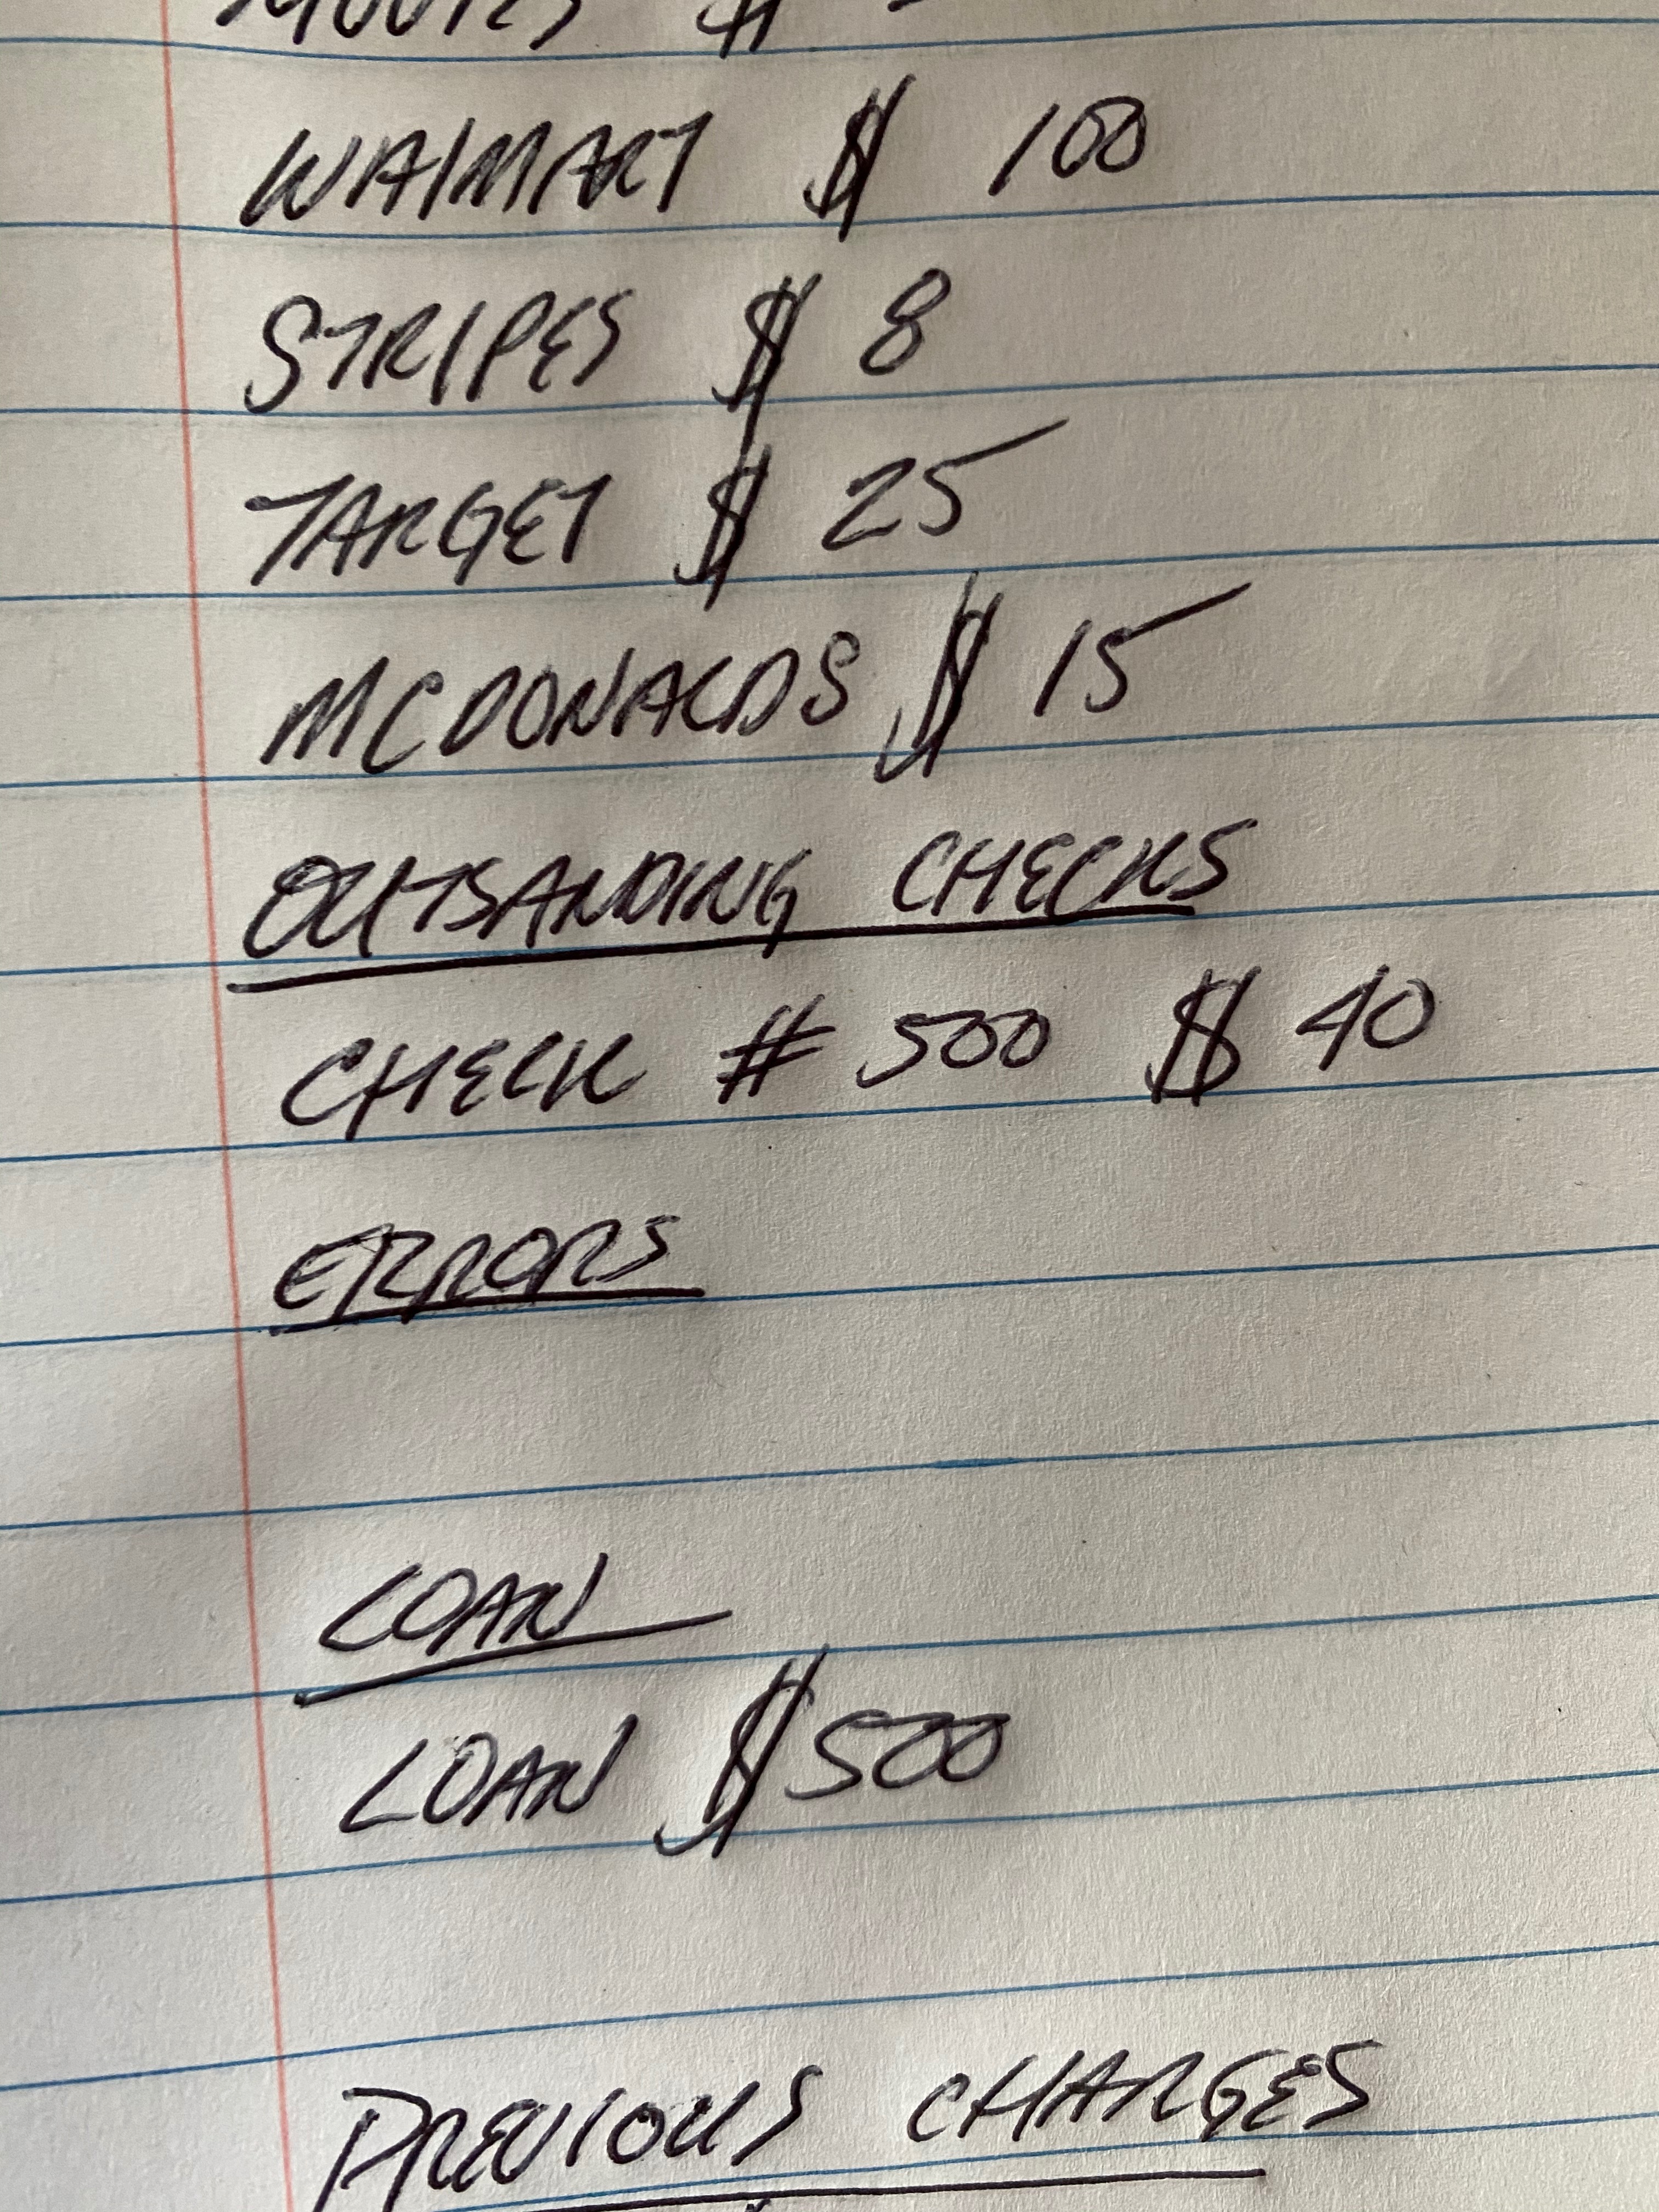 $
WAlMART $ 100
STRIPES $ 8
TARGET $ 25
MCDONALDS $ 15
OUTSANDING CHECKS
CHECK # 500 $ 40
ERRORS
LOAN
LOAN $500
PREVIOUS CHARGES